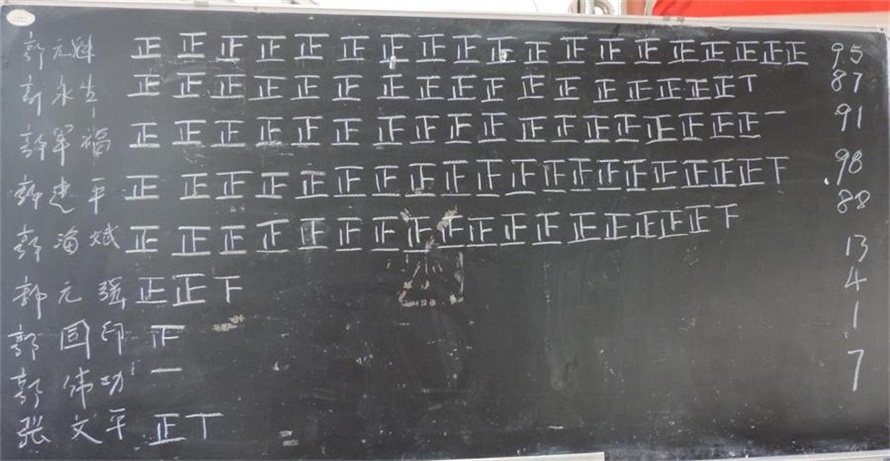 郭元魁 正正正正正正正正正正正正正正正正正正正 95
郭永生 正正正正正正正正正正正正正正正正正丅 87
郭军福 正正正正正正正正正正正正正正正正正正一 91
郭建平 正正正正正正正正正正正正正正正正正正正下 98
郭海斌 正正正正正正正正正正正正正正正正正下 88
郭元强 正正下 13
郭国印 正 4
郭伟功 一 1
张文平 正丅 7